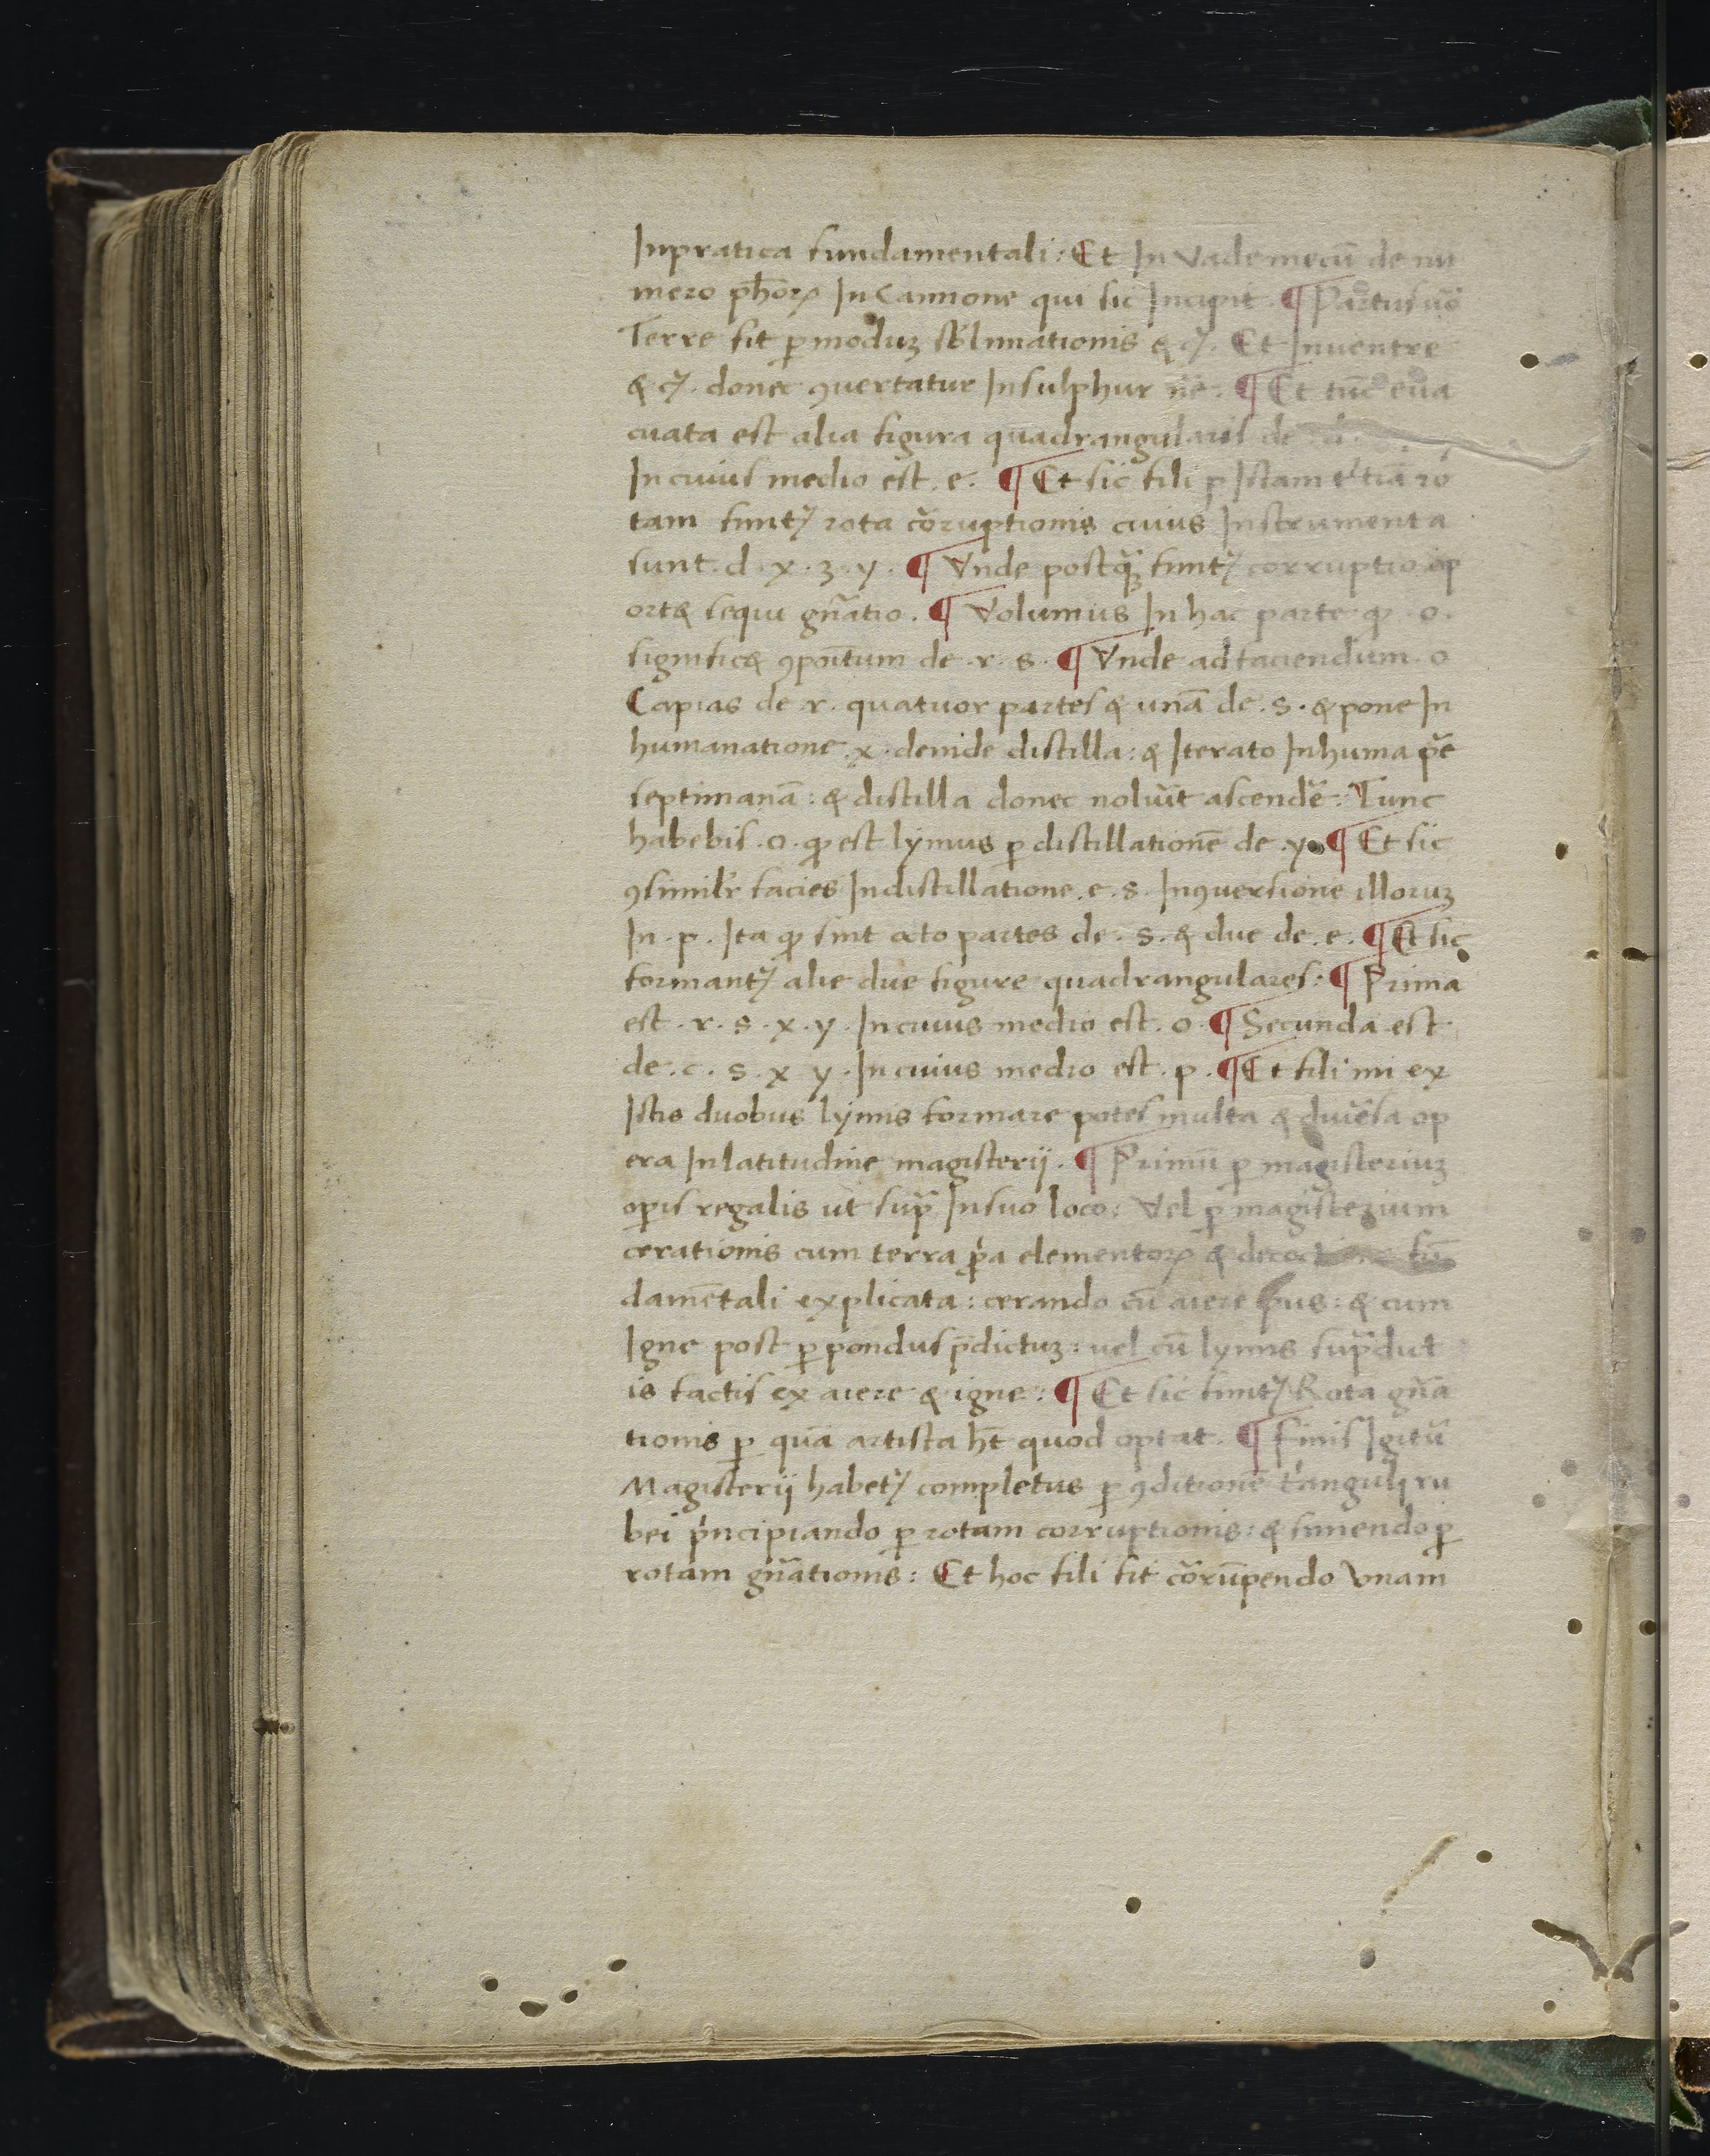 Inpratica fundamentali: Et In vade mecū de nu
mero ph̄oꝝ In Cannone qui sic Incipit. ¶ Partus u͞o
Terre fit ꝑ moduꝫ sb̓limationis & cꝫ. Et Inuentre
& cꝫ. donec ꝯuertatur Insulphur n̄e. ¶ Et tūc eua
cuata est alia figura quadrangularis de
In cuius medio est. e. ¶ Et sic fili ꝑ Istam t̓tiā ro
tam finitꝫ rota cōruptionis cuius Instrumenta
sunt. d. x. z. y. ¶ Vnde postqꝫ finitꝫ corruptio op
ortꝫ sequi gn̄atio. ¶ Volumus In hac parte ꝙ .o.
significꝫ ꝯpoītum de .r. s. ¶ Vnde ad faciendum. o
Capias de .r. quatuor partes & unā de .s. & pone In
humanatione .x. deinde distilla: & Iterato Inhuma p̄e
septimanā: & distilla donec noluīt ascendē: Tunc
habebis .o. ꝙ est lymus ꝑ distillationē de .y. ¶ Et sic
ꝯsimilr̄ facies Indistillatione .e. s. Inꝯuersione illoruꝫ
In .p. Ita ꝙ sint octo partes de .s. & due de .e. ¶ Et sic
formantꝫ alie due figure quadrangulares: ¶ Prima
est .r. s. x. y. In cuius medio est. o. ¶ Secunda est
de .c. s. x y. In cuius medio est. p. ¶ Et fili mi ex
Istis duobus lymis formare potes multa & diuēsa op
era Inlatitudine magisterij. ¶ Primū ꝑ magisteriuꝫ
oꝑis regalis ut supᷓ Insuo loco: Vel ꝑ magisterium
cerationis cum terra pᷓa elementoꝝ & fū
damētali explicata: cerando cū aiere pus: & cum
Igne post ꝑ pondus p̄dictuꝫ: uel cū lymis supᷓdict
is factis ex aiere & igne: ¶ Et sic finitꝫ Rota gn̄a
tionis ꝑ quā artista ht̄ quod optat. ¶ Finis Igitū
Magisterij habetꝫ completus ꝑ ꝯditionē t̓anguli ru
bei p̓ncipiando ꝑ rotam corruptionis: & finiendo ꝑ
rotam gn̄ationis: Et hoc fili fit cōrūpendo vnam